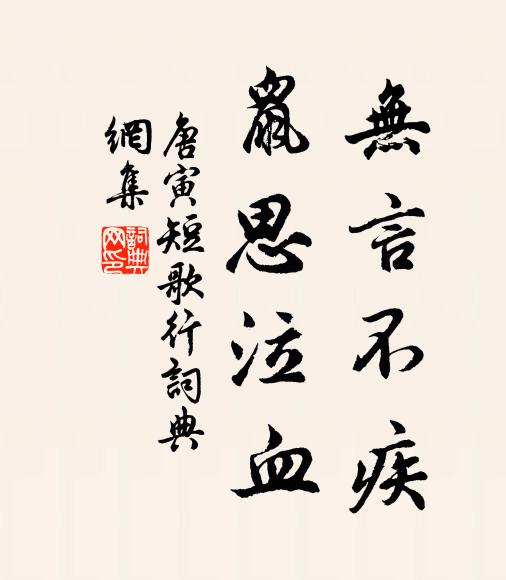 無言不疾
鼠思泣血
唐寅短歌行詞典
網集
詞典
网印